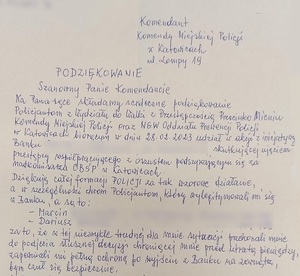 Komendant
Komendy Miejskiej Policji
w Katowicach
ul Lompy 19
PODZIĘKOWANIE
Szanowny Panie Komendancie
Na Pana ręce składamy serdeczne podziękowanie
Policjantom z Wydziału do Walki z Przestępczością Przeciwko Mieniu
Komendy Miejskiej Policji oraz NGW Oddziału Prewencji Policji
w Katowicach biorącym w dniu 28.02.2023 udział w akcji z
Banku skutkującej ujęciem
przestępcy współpracującego z oszustem podszywającym się za
CBŚP w Katowicach.
Dziękuję całej formacji POLICJI za tak wzorowe działanie,
a w szczególności dwóm Policjantom, którzy wylegitymowali mi się
w Banku, a są to:
- Marcin
- Dariusz
za to, że w tej niezwykle trudnej dla mnie sytuacji przekonali mnie
do podjęcia słusznej decyzji chroniącej mnie przed utratą pieniędzy,
zapewnili mi pełną ochronę po wyjściu z Banku na zewnątrz,
bym czuł się bezpiecznie.